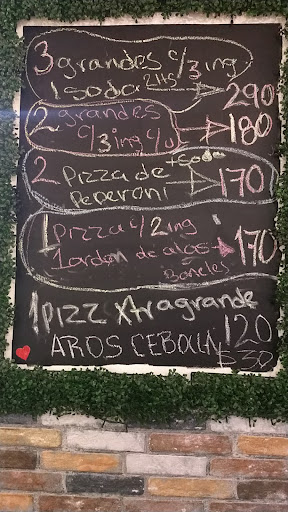 3 grandes c/3 ing
1 Soda 2lts → 290
2 grandes
c/3 ing c/u → 180
2 Pizza de +soda
Peperoni → 170
1 pizza c/2 ing
1 ordon de alas → 170
Boneles
1 pizz Xtragrande
120
AROS CEBOLLA $30